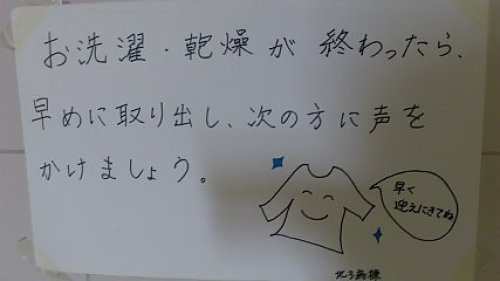 お洗濯・乾燥が終わったら、
早めに取り出し、次の方に声を
かけましょう。
早く
迎えにきてね